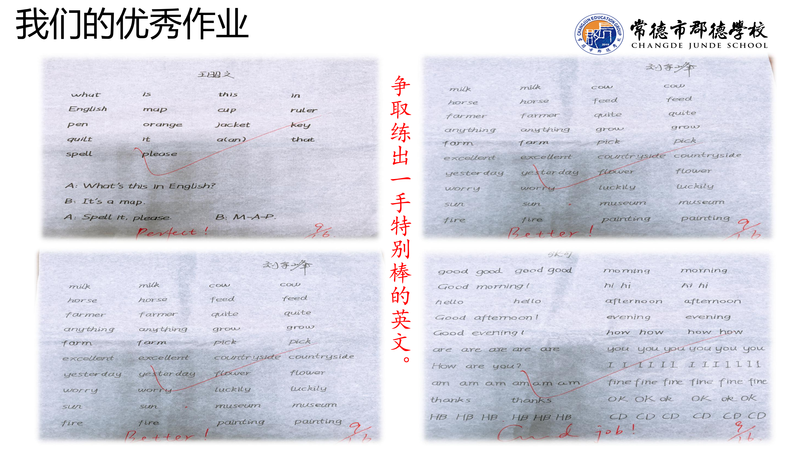 我们的优秀作业
常德市郡德学校
CHANGDE JUNDE SCHOOL
what is this in
English map cup ruler
pen orange jacket key
quilt it a(an) that
spell please
A: What's this in English?
B: It's a map.
A: Spell it, please. B: M-A-P.
Perfect!
争取练出一手特别棒的英文。
milk milk cow cow
horse horse feed feed
farmer farmer quite quite
anything anything grow grow
farm farm pick pick
excellent excellent countryside countryside
yesterday yesterday flower flower
worry worry luckily luckily
sun sun museum museum
fire fire painting painting
Better!
milk milk cow cow
horse horse feed feed
farmer farmer quite quite
anything anything grow grow
farm farm pick pick
excellent excellent countryside countryside
yesterday yesterday flower flower
worry worry luckily luckily
sun sun museum museum
fire fire painting painting
Better!
good good good good morning morning
Good morning! hi hi hi hi
hello hello afternoon afternoon
Good afternoon! evening evening
Good evening! how how how how
are are are are are you you you you you you
How are you? I I I I I I I I I I I I
am am am am am am fine fine fine fine fine fine
thanks thanks OK OK ok OK ok OK
HB HB HB HB HB HB CD CD CD CD CD CD
Good job!